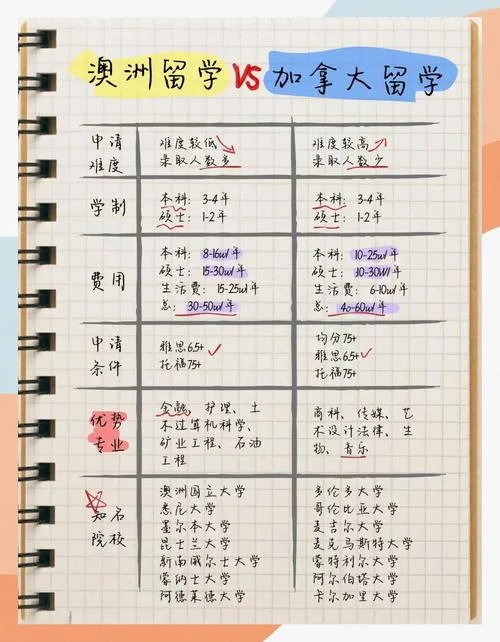 澳洲留学 VS 加拿大留学
申请
难度
难度较低
录取人数多
难度较高
录取人数少
学制
本科：3-4年
硕士：1-2年
本科：3-4年
硕士：1-2年
费用
本科：8-16w/年
硕士：15-30w/年
生活费：15-25w/年
总：30-50w/年
本科：10-25w/年
硕士：10-30W/年
生活费：6-10w/年
总：40-60w/年
申请
条件
雅思6.5+
托福75+
均分75+
雅思6.5+
托福75+
优势
专业
金融、护理、土
木过算机科学、
矿业工程、石油
工程
商科、传媒、艺
术设计法律、生
物、音乐
知名
院校
澳洲国立大学
悉尼大学
墨尔本大学
昆士兰大学
新南威尔士大学
蒙纳士大学
阿德莱德大学
多伦多大学
哥伦比亚大学
麦吉尔大学
麦克马斯特大学
蒙特利尔大学
阿尔伯塔大学
卡尔加里大学